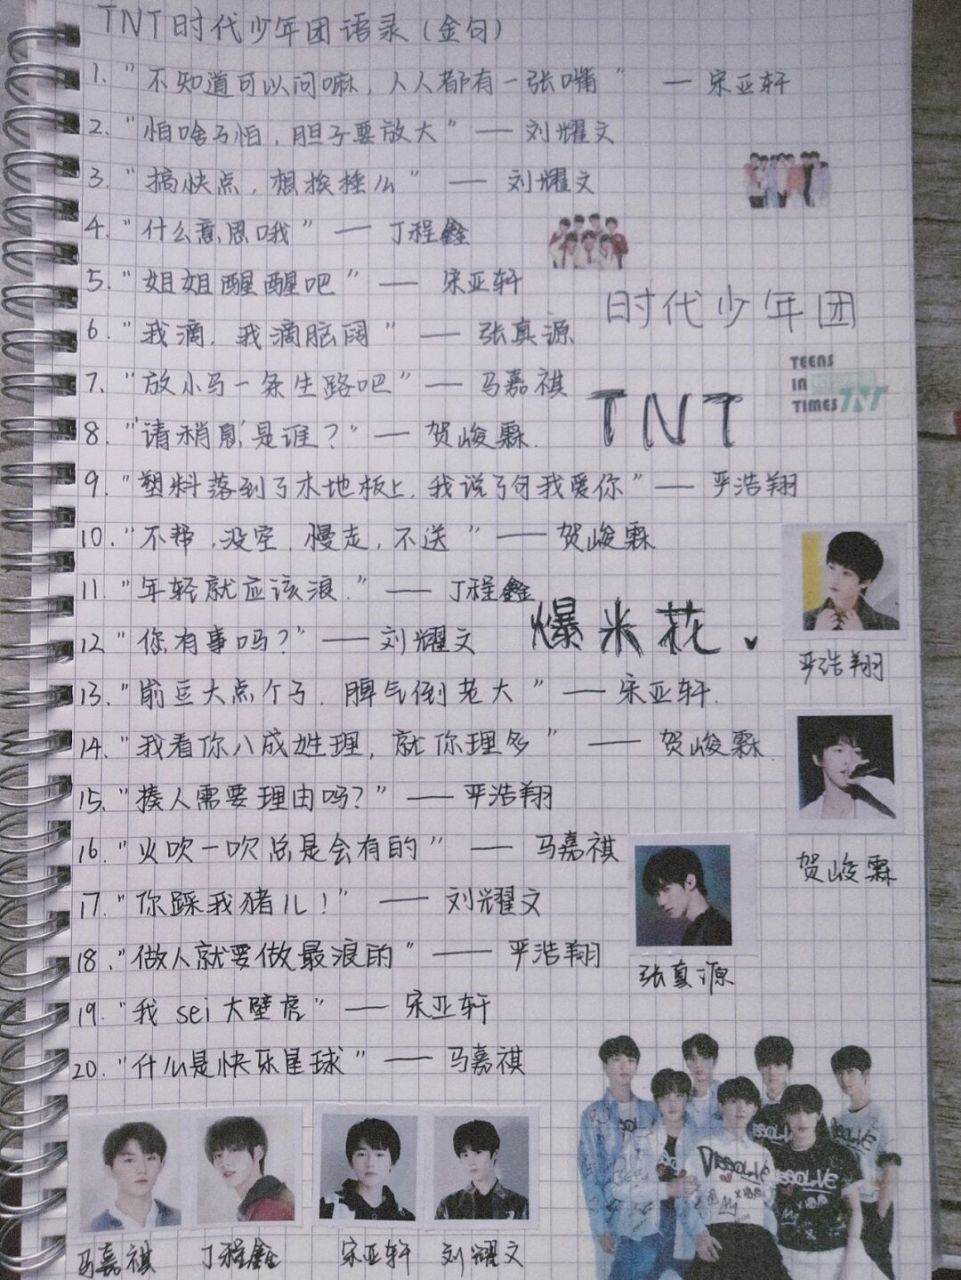 TNT时代少年团语录（金句）
1. "不知道可以问嘛，人人都有一张嘴" — 宋亚轩
2. "怕啥子怕，胆子要放大" — 刘耀文
3. "搞快点，想挨捶么" — 刘耀文
4. "什么意思哦" — 丁程鑫
5. "姐姐醒醒吧" — 宋亚轩
时代少年团
6. "我滴，我滴脑阔" — 张真源
TEENS
IN
TIMES TNT
7. "放小马一条生路吧" — 马嘉祺
TNT
8. "'请稍息'是谁？" — 贺峻霖.
9. "塑料落到了木地板上，我说了句我爱你" — 严浩翔
10. "不帮，没空，慢走，不送" — 贺峻霖
11. "年轻就应该浪." — 丁程鑫
爆米花.
12 "你有事吗？" — 刘耀文
严浩翔
13. "前豆大点个子，脾气倒老大" — 宋亚轩.
14. "我看你八成姓理，就你理多" — 贺峻霖.
15. "揍人需要理由吗？" — 严浩翔
16. "火吹一吹总是会有的" — 马嘉祺
贺峻霖
17. "你踩我猪儿！" — 刘耀文
18. "做人就要做最浪的" — 严浩翔
张真源
19. "我 sei 大壁虎" — 宋亚轩
20. "什么是快乐星球" — 马嘉祺
DISSOLVE
马嘉祺 丁程鑫 宋亚轩 刘耀文